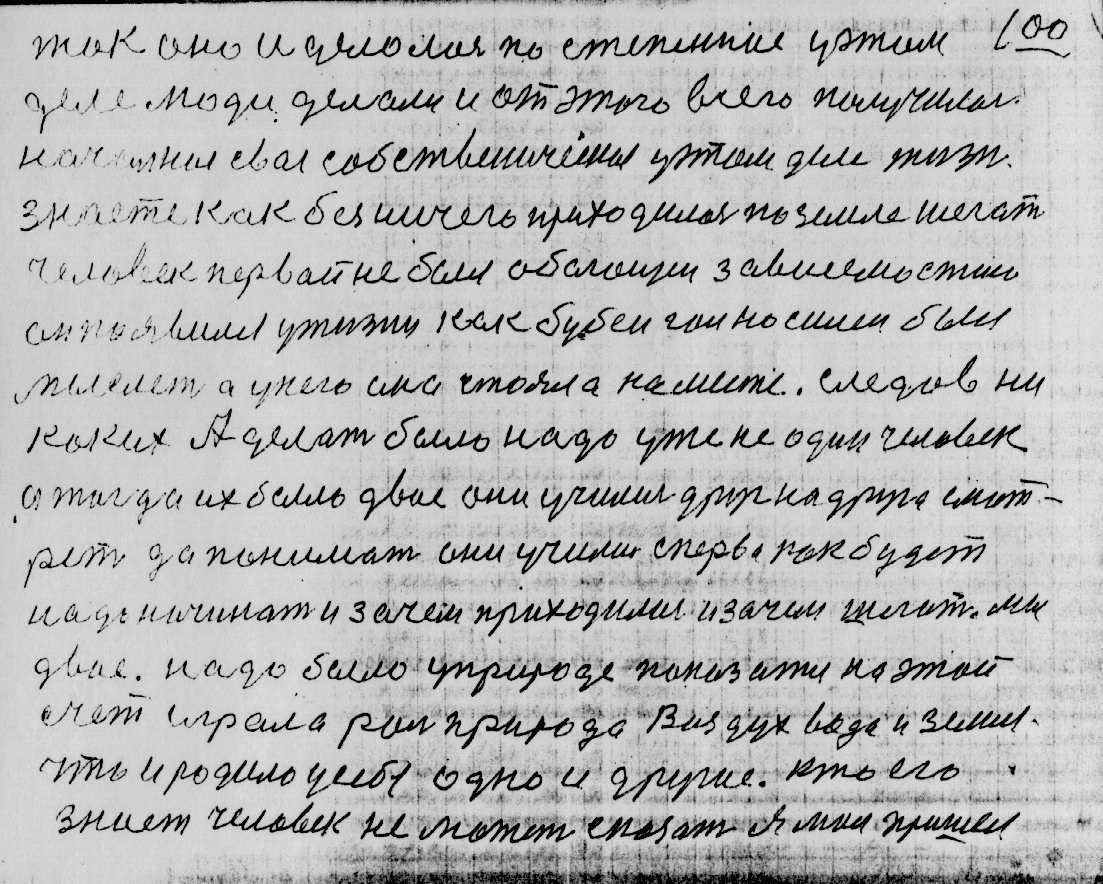 так оно и делолося по степенние уэтом 100
деле люди делали и от этого всего получилос.
началися свае собственическия уэтом деле жизн.
знаете как безничего приходилося по земле шегат
человек первай не был облающи зависемостию
он появился ужизни как бубен гои носилси был
мыслет а унего она стояла наместе. следов ни
коких А делат было надо уже не один человек
а тогда их было двое они училис друг надруга смот-
рет да понимат они училис сперва как будет
надо начинат и зачем приходилос и зачем шегат. мы
двае. надо было уприроде показати на этой
счет играла рол природа Воздух вода и земля.
что и родило усебя одно и другие. кто его
знает человек не может сказат я мол пришел